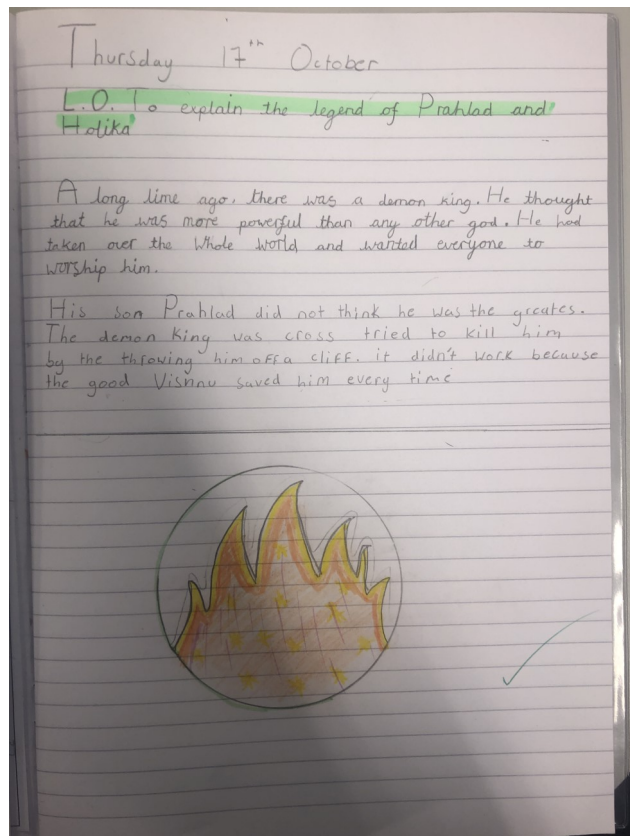 Thursday 17th October
L.O. To explain the legend of Prahlad and
Holika
A long time ago, there was a demon king. He thought
that he was more powerful than any other god. He had
taken over the whole world and wanted everyone to
worship him.
His son Prahlad did not think he was the greates.
The demon king was cross tried to kill him
by the throwing him off a cliff. it didn't work because
the good Visnnu saved him every time